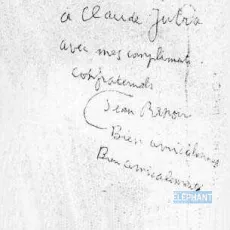 à Claude Jutra
avec mes compliments
confraternels
Jean Renoir
Bien amicalement
Bien amicalement
ELEPHANT